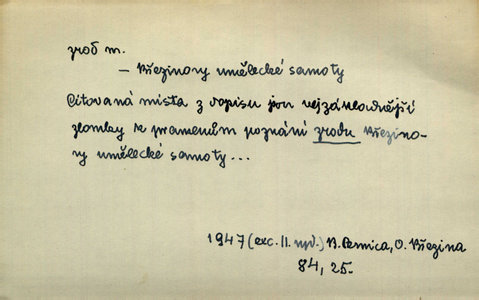 zrod m.
– Březinovy umělecké samoty
Citovaná místa z dopisu jsou nejzákladnější
zlomky k pramenům poznání zrodu Březino-
vy umělecké samoty...
1947 (exc. 11. npř.) B. Pernica, O. Březina
84, 25.